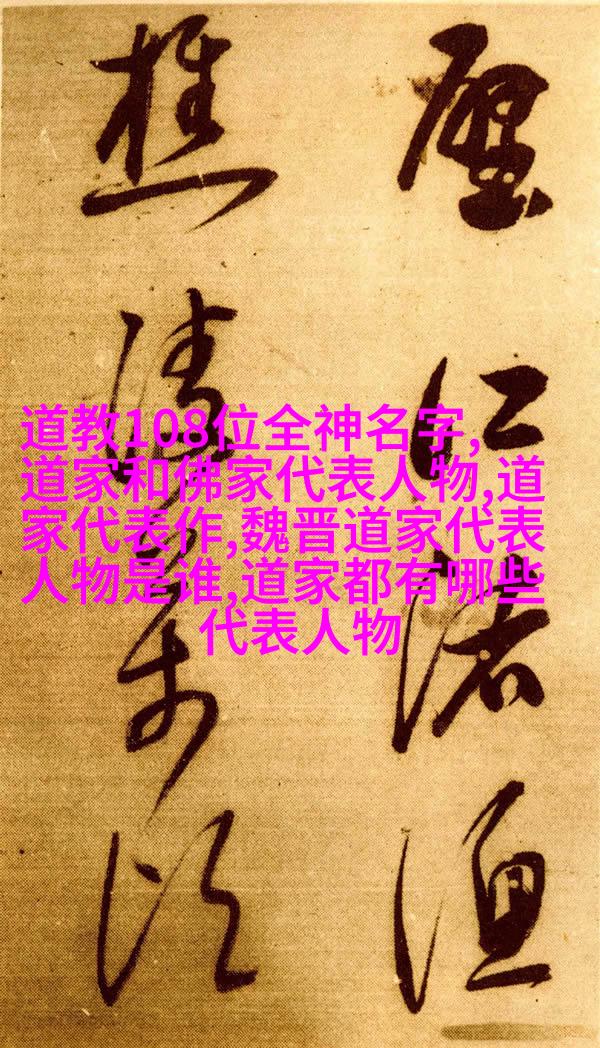 道教108位全神名字,
道家和佛家代表人物,道
家代表作,魏晋道家代表
人物是谁,道家都有哪些
代表人物
江渚渔
樵